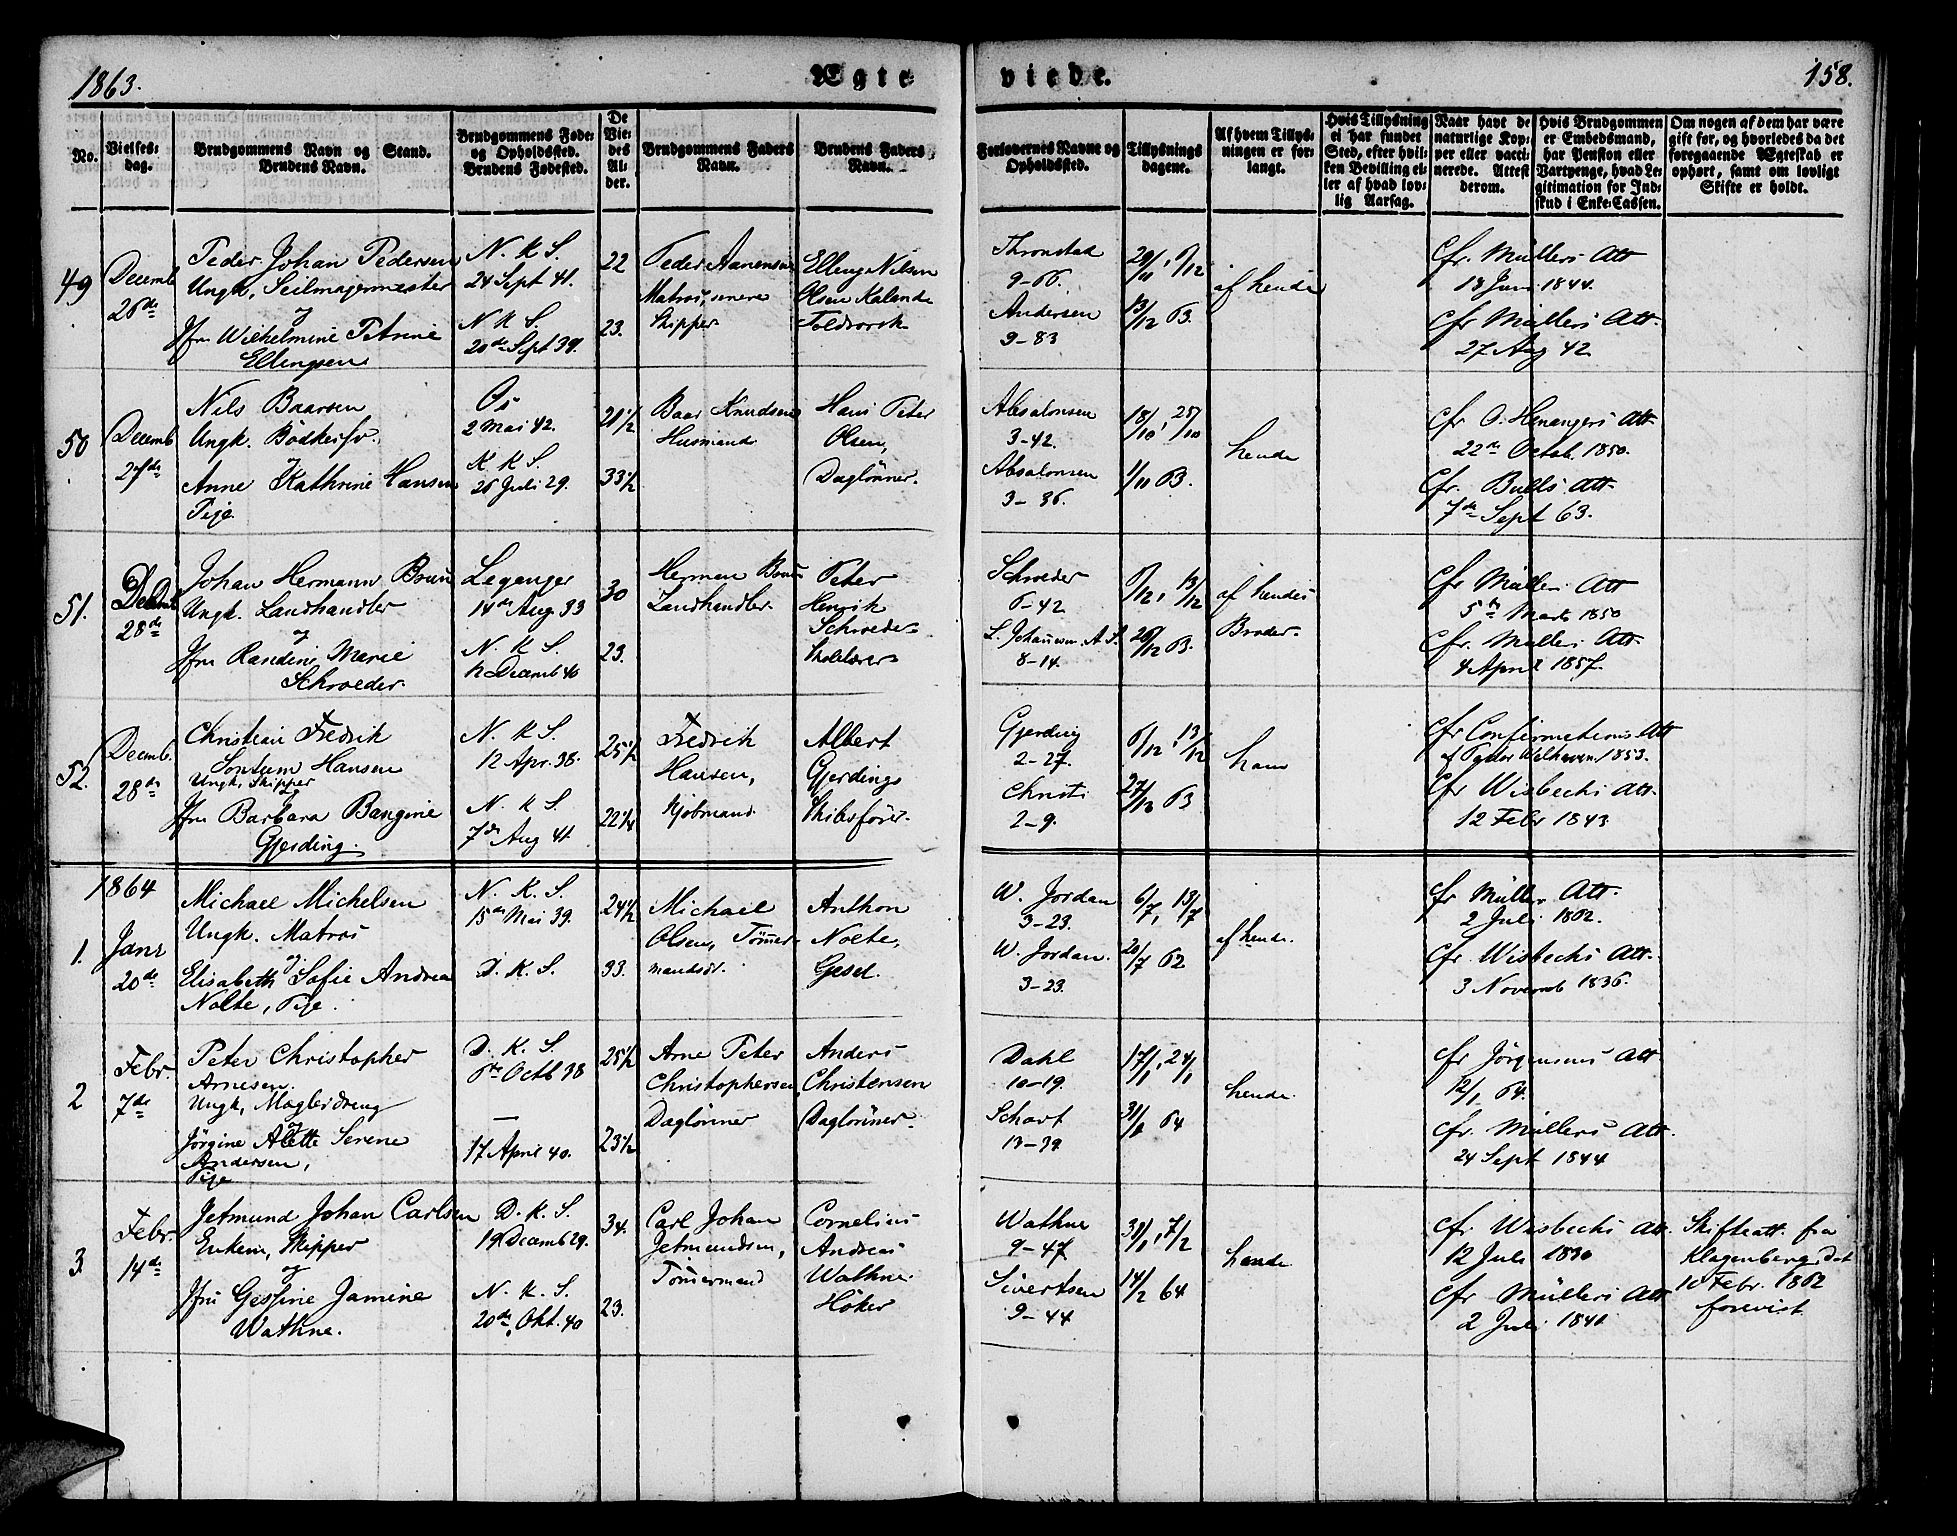 1863.
Ægte
viede.
158.
No.
Vielses-
dag.
Brudgommens Navn og Stand.
Brudens Navn.
Brudgommens Føde-
og Opholdssted.
Brudens Fødested.
De
Vie-
des
Al-
der.
Brudgommens Faders
Navn.
Brudens Faders
Navn.
Forlovernes Navne og
Opholdssted.
Tillysnings
dagene.
Af hvem Tillys-
ningen er for-
langt.
Hvis Tillysning
ei har fundet
Sted, efter hvil-
ken Bevilling el-
ler af hvad lov-
lig Aarsag.
Naar havt de
naturlige Kop-
per eller vacci-
nerede. Attest
derom.
Hvis Brudgommen
er Embedsmand,
har Pension eller
Vartpenge, hvad Le-
gitimation for Ind-
skud i Enke-Cassen.
Om nogen af dem har være
gift før, og hvorledes da det
foregaaende Ægteskab er
ophørt, samt om lovligt
Skifte er holdt.
49
Decemb
26de
Peder Johan Pedersen
Ungk, Seilmagermester
og
Jfru Wilhelmine Petrine
Ellingsen
N. K. S.
24 Sept 41.
N K S.
20de Sept 39.
22
23.
Peder Aanensen
Matros, senere
Skipper
Elling Nilsen
Olsen Kalande
Toldvorst
Thronstad
9-66.
Andersen
9-83
29/11, 6/12
13/12 63.
af hende
Cfr. Müllers Att
18 Juni 1844.
Cfr Müllers Att.
27 Aug 42.
50
Decemb
27de
Nils Baarsen
Ungk. Bödkersv.
og
Anne Kathrine Hansen
Pige
Os
2 Mai 42.
K K S.
26 Juli 29.
21 1/2
33 1/2
Baar Knudsen
Husmand
Hans Peter
Olsen,
Daglönner.
Absalonsen
3-42.
Absalonsen
3-36.
18/10, 25/10
1/11 63.
hende
Cfr O. Henangers Att
22de Octob 1850.
Cfr. Bulls Att.
7de Sept 63.
51.
Decemb
28de
Johan Hermann Bruun
Ungk. Landhandler
og
Jfru Randine Marie
Schroeder.
Leganger
14de Aug 33
N. K S.
12 Decemb 40
30
23.
Herman Bruun
Landhandler.
Peter
Henrik
Schroeder
Skolelærer
Schroeder
6-42
L. Johannesen A. S.
8-14.
6/12, 13/12
20/12 63.
af hendes
Broder.
Cfr Müllers Att
5te Marts 1850
Cfr. Müllers Att.
4 April 1857.
52.
Decemb.
28de
Christian Fredrik
Sontum Hansen
Ungk, Skipper
og
Jfru Barbara Bangine
Gjerding.
N. K S.
12 Apr. 38.
N. K S.
7de Aug 41
25 1/2
22 1/4
Fredrik
Hansen,
Kjöbmand
Albert
Gjerdings
Skibsförer.
Gjerding
2-27.
Christi
2-9.
6/12, 13/12
27/12 63
ham
Cfr Confirmations Att
af Pastor Welhaven 1853.
Cfr Wisbechs Att.
12 Febr 1843.
1864
1.
Janr
20de
Michael Michelsen
Ungk. Matros
og
Elisabeth Sofie Andrea
Nolte, Pige.
N. K. S.
15de Mai 39.
D. K. S.
24 1/2
33.
Michael
Olsen, Tömmer-
mandssv.
Anthon
Nolte,
Gesel.
W. Jordan
3-23.
W. Jordan.
3-23.
6/7, 13/7
20/7 62
af hende.
Cfr Müllers Att.
2 Juli 1862.
Cfr Wisbechs Att.
3 Novemb 1836.
2
Febr.
7de
Peter Christopher
Arnesen.
Ungk, Maglerdreng
og
Jörgine Alette Serene
Andersen,
Pige
D. K. S.
6te Octb 38
—
17 April 40.
25 1/2
23 1/2
Arne Peter
Christophersen
Daglönner
Anders
Christensen
Daglönner.
Dahl
10-19.
Schart
13-39.
17/1, 24/1
31/1 64
hende.
Cfr Jörgensens Att
12/1 64.
Cfr. Müllers Att.
24 Sept 1844
3
Febr.
14de
Jetmund Johan Carlsen
Enkem, Skipper
og
Jfru Gessine Jamine
Wathne.
D. K. S.
19 Decemb 29.
N. K. S.
20de Okt. 40
34.
23.
Carl Johan
Jetmundsen,
Tömmermand
Cornelius
Andreas
Wathne.
Höker
Wathne
9-47
Sivertsen
9-44
31/1, 7/2
14/2 64
hende
Cfr. Wisbechs Att.
12 Juli 1830
Cfr Müllers Att
2 Juli 1841
Skifteatt. fra
Klagenberg, Dat
10 Febr. 1862
forevist